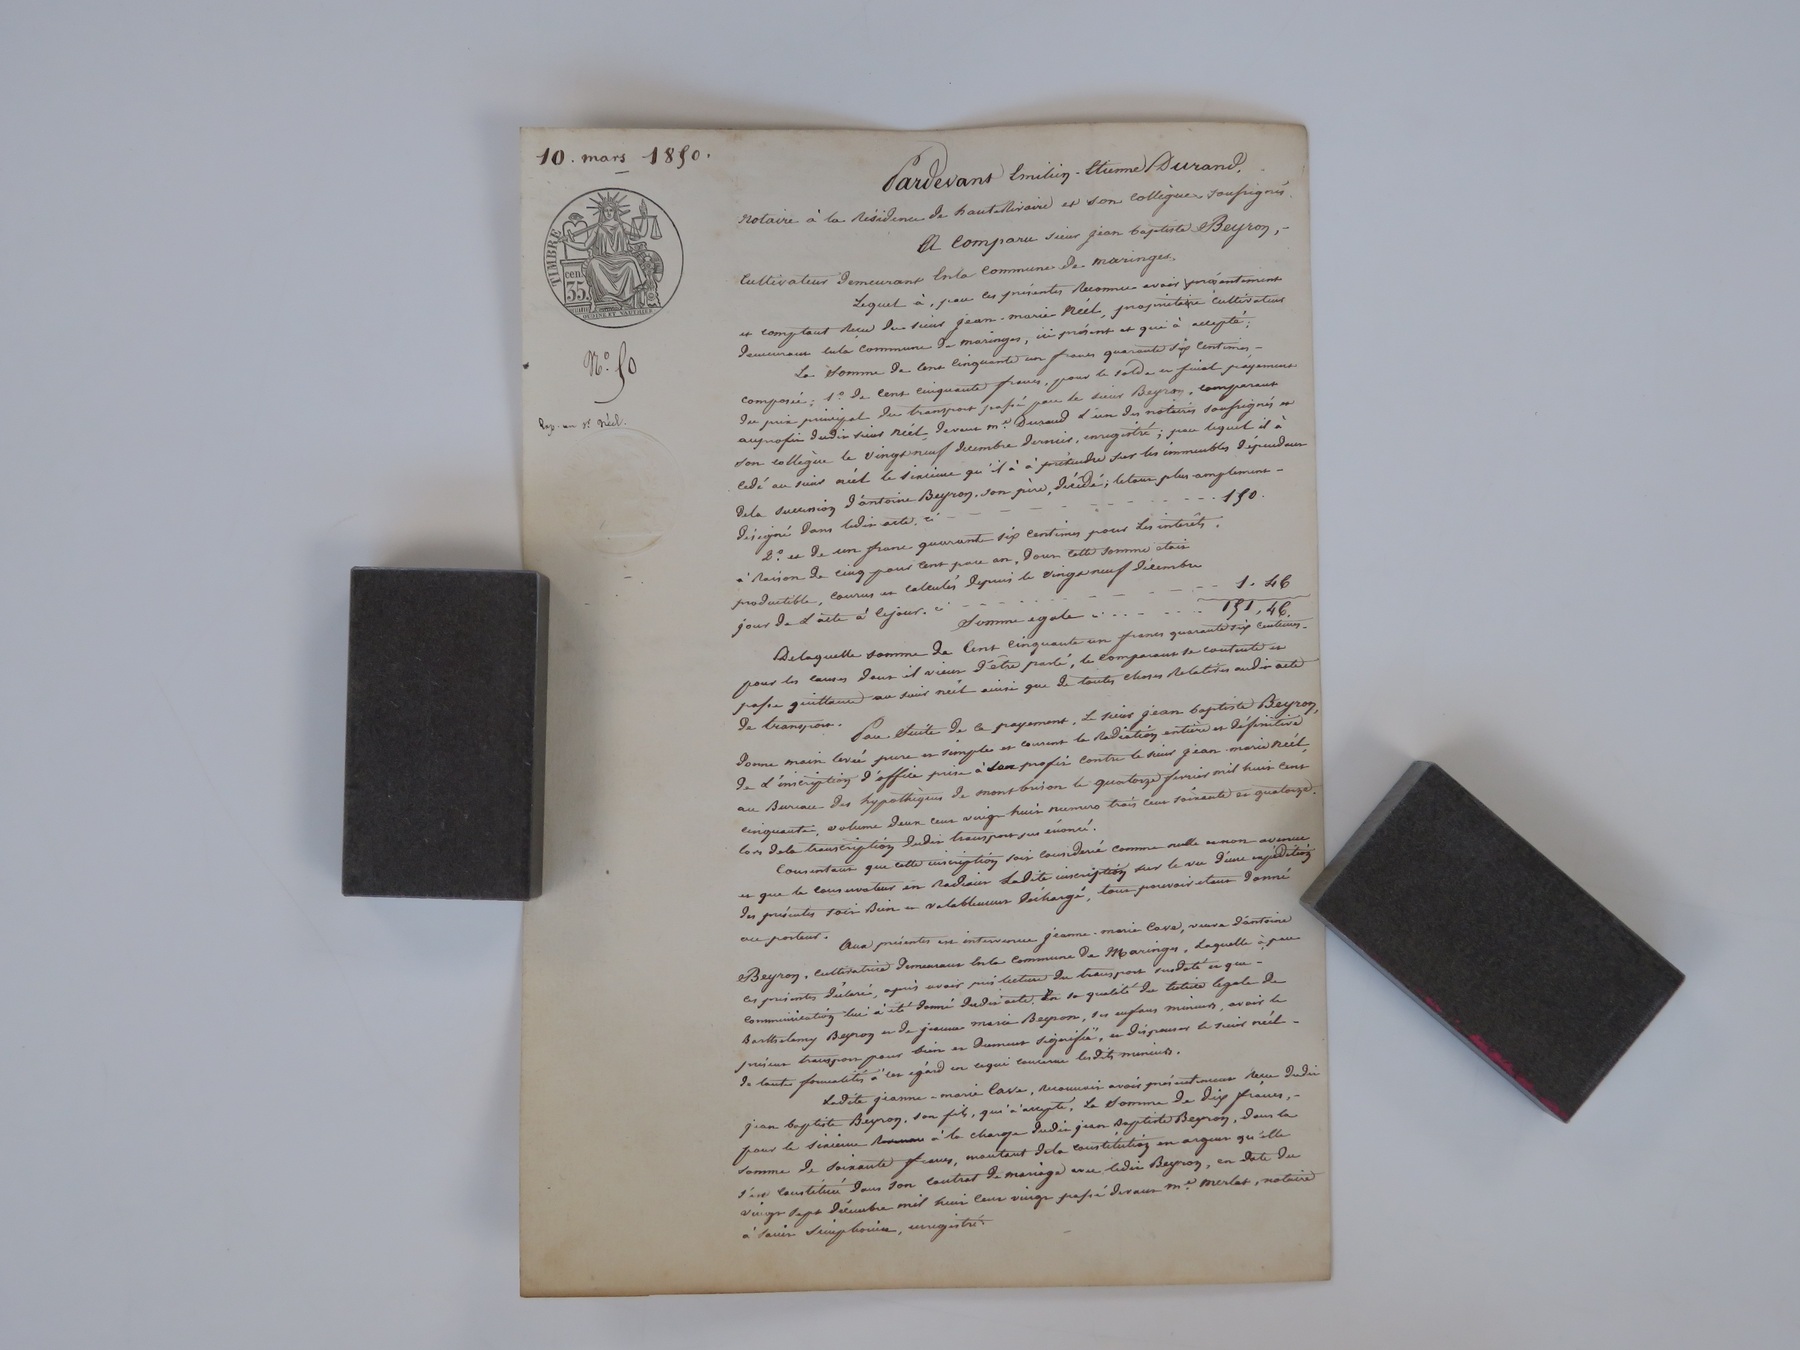 10. mars 1850.
TIMBRE
cen.
35.
OUDINÉ ET VAUTHIER
N.º 50
Rep. au s.r Néel.
Pardevant Emilien-Etienne Durand,
Notaire à la Résidence de hauterivoire et son collègue soussignés.
A Comparu sieur jean baptiste Beyron,-
Cultivateur demeurant En la Commune de maringes.
Lequel à, par ces présentes Reconnu avoir présentement
et comptant Reçu du sieur jean-marie Néel, propriétaire Cultivateur
demeurant en la Commune de maringes, ici présent et qui à accepté;
La Somme de Cent Cinquante un francs quarante six Centimes-
composée: 1.º de Cent Cinquante francs, pour le solde et final payement
du prix principal du transport passé par le sieur Beyron, comparant
au profit dudit sieur Néel, devant m.e Durand l'un des notaires soussignés et
son collègue le vingt neuf décembre dernier, enregistré; par lequel il à
cédé au sieur néel le sixième qu'il à à prétendre sur les immeubles dépendant
de la succession d'antoine Beyron, son père, décédé; le tout plus amplement-
désigné dans ledit acte. ci - - - - - 150.
2.º et de un franc quarante six centimes pour les intérêts,
à Raison de cinq pour cent par an, dont cette somme était
productible, courus et calculés depuis le vingt neuf décembre
jour de l'acte à ce jour. ci - - - - - 1. 46
Somme égale - - - - 151. 46.
De laquelle somme de Cent Cinquante un francs quarante six centimes-
pour les causes dont il vient d'être parlé, le comparant se contente et
passe quittance au sieur néel ainsi que de toutes choses Relatives audit acte
de transport.
Par Suite de ce payement, le sieur jean baptiste Beyron,
donne main levée pure et simple et consent la Radiation entière et définitive
de l'inscription d'office prise à son profit contre le sieur jean marie Néel,
au Bureau des hypothèques de montbrison le quatorze février mil huit cent
cinquante, volume deux cent vingt huit numéro trois cent soixante et quatorze,
lors de la transcription dudit transport sus énoncé.
Consentant que cette inscription soit considérée comme nulle et non avenue
et que le conservateur en Radiant Ladite inscription sur le vu d'une expédition
des présentes soit Bien et valablement déchargé, tout pouvoir étant donné
au porteur.
Aux présentes est intervenue jeanne-marie Cave, veuve d'antoine
Beyron, cultivatrice demeurant En la commune de Maringes, Laquelle à, par
ces présentes déclaré, après avoir pris lecture du transport susdaté et que-
communication lui à été donné dudit acte, En sa qualité de tutrice légale de
Barthelemy Beyron et de jeanne marie Beyron, ses enfans mineurs, avoir le
présent transport pour bien et dument signifié, et dispenser le sieur néel-
de toutes formalités à cet égard en ce qui concerne lesdits mineurs.
Ladite jeanne-marie Cave, reconnait avoir présentement Reçu dudit
jean baptiste Beyron, son fils, qui à accepté, La Somme de dix francs,-
pour le sixième à la charge dudit jean Baptiste Beyron, dans la
somme de soixante francs, montant de la constitution en argent qu'elle
s'est constituée dans son contrat de mariage avec ledit Beyron, en date du
vingt sept décembre mil huit cent vingt passé devant m.e merlat, notaire
à Saint Simphorien, enregistré.